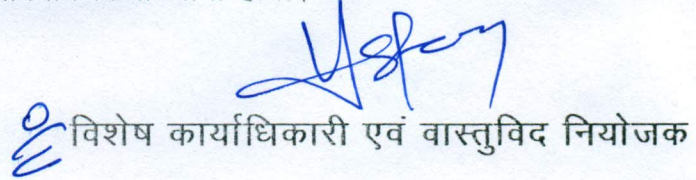 विशेष कार्याधिकारी एवं वास्तुविद नियोजक